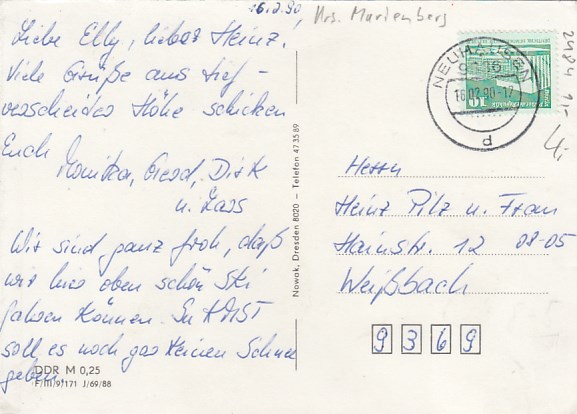 16.2.90
Krs. Marienberg
Liebe Elly, lieber Heinz!
Viele Grüße aus tief-
verschneiter Höhe schicken
Euch
Monika, Gerd, Dirk
u. Lars
Wir sind ganz froh, daß
wir hier oben schön Ski
fahren können. In
soll es noch gar keinen Schnee
geben.
DDR M 0,25
F/III/9/171 J/69/88
Nowak, Dresden 8020 – Telefon 473589
NEUHAUSEN
9336
16.02.90-17
d
10
2484 1,-
4,-
Herrn
Heinz Pilz u. Frau
Hainstr. 12 08-05
Weißbach
9 3 6 9